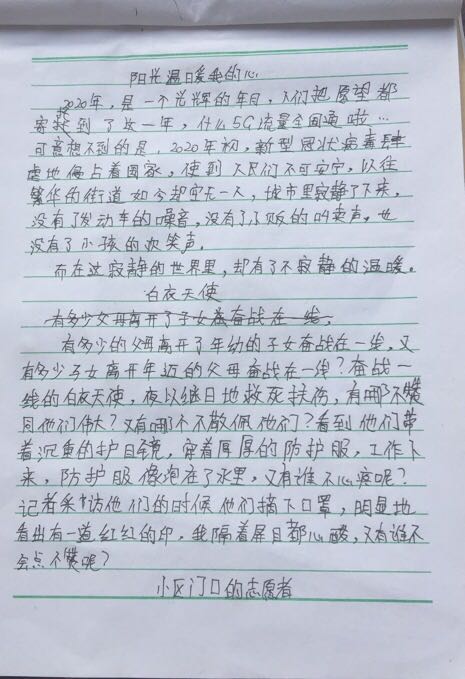 阳光温暖我的心
2020年，是一个光辉的年日，人们把愿望都
寄托到了这一年，什么5G流量全国通啦…
可意想不到的是，2020年初，新型冠状病毒肆
虐地侵占着国家，使到人民们不可安宁，以往
繁华的街道如今却空无一人，城市里寂静了下来，
没有了发动车的噪音，没有了小贩的叫卖声。也
没有了小孩的欢笑声。
而在这寂静的世界里，却有了不寂静的温暖。
白衣天使
有多少父母离开了子女奋战在一线，
有多少的父母离开了年幼的子女奋战在一线，又
有多少子女离开年迈的父母奋战在一线？奋战一
线的白衣天使，夜以继日地救死扶伤，有哪不赞
同他们伟大？又有哪个不敬佩他们？看到他们带
着沉重的护目镜，穿着厚厚的防护服，工作下
来，防护服像泡在了水里，又有谁不心疼呢？
记者采访他们的时候他们摘下口罩，明显地
看出有一道红红的印，我隔着屏目都心酸，又有谁不
会点不赞呢？
小区门口的志愿者